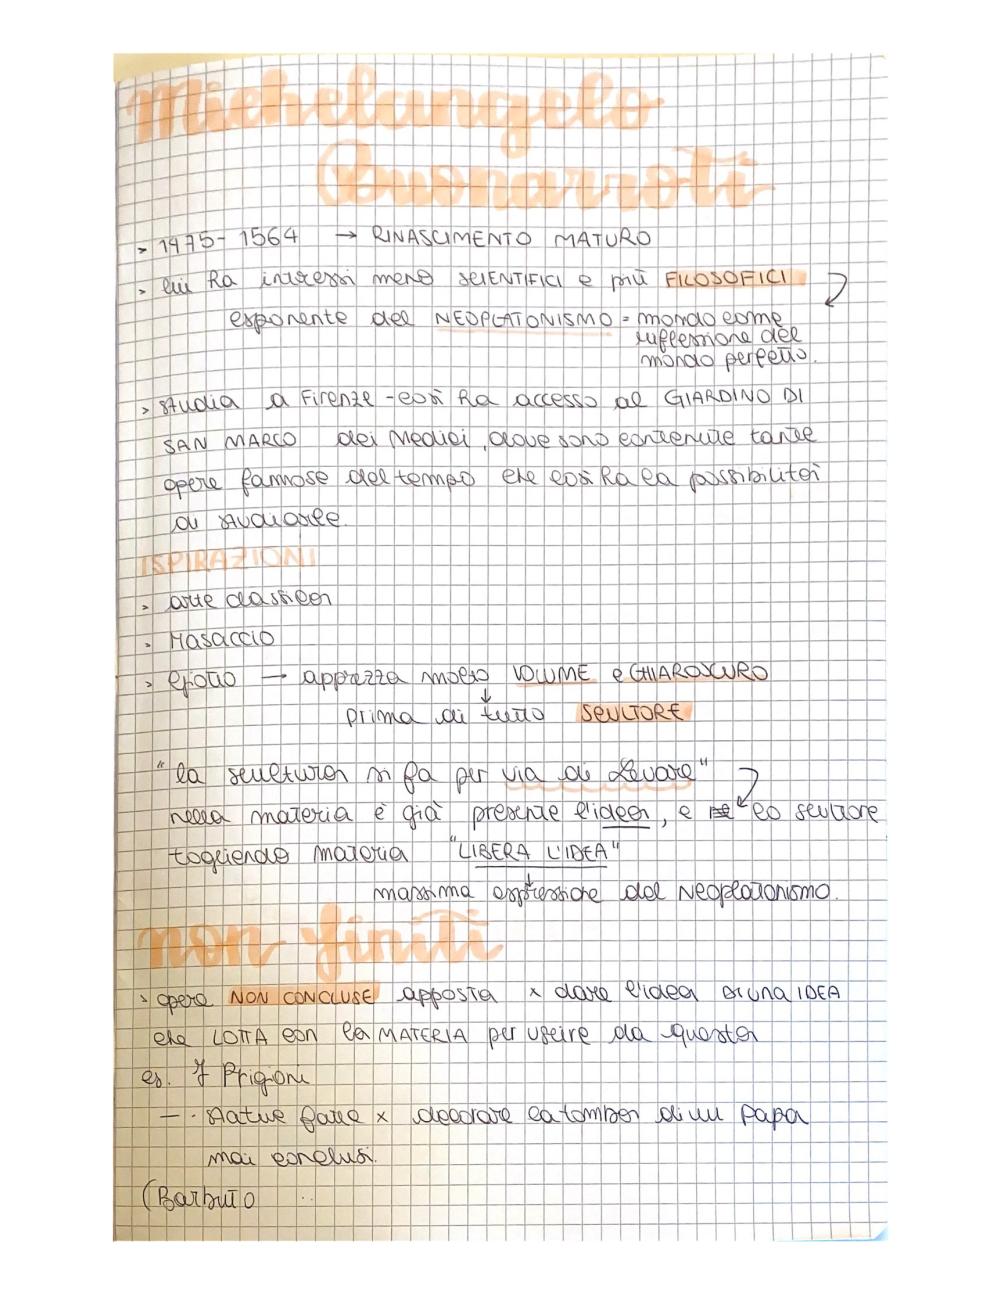 Michelangelo
Buonarroti
> 1475-1564 → RINASCIMENTO MATURO
> lui ha interessi meno SCIENTIFICI e più FILOSOFICI
esponente del NEOPLATONISMO = mondo come
riflessione del
mondo perfetto.
> studia a Firenze - così ha accesso al GIARDINO DI
SAN MARCO dei Medici, dove sono contenute tante
opere fammose del tempo che così ha la possibilità
di studiarle.
ISPIRAZIONI
> arte classica
> Masaccio
> Giotto → apprezza molto VOLUME e CHIAROSCURO
↓
prima di tutto SCULTORE
"la scultura si fa per via di Levare"
nella materia è già presente l'idea, e lo scultore
togliendo materia "LIBERA L'IDEA"
↓
massima espressione del Neoplatonismo.
non finiti
> opere NON CONCLUSE apposta x dare l'idea DI UNA IDEA
che LOTTA con la MATERIA per uscire da questa
es. I Prigioni
- · statue fatte x decorare la tomba di un papa
mai conclusi.
(Barbuto ..